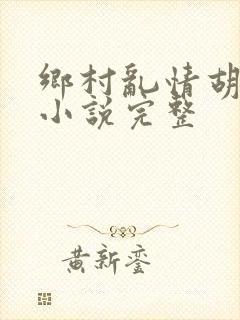 鄉村亂情胡
小說完整
黃新鑾